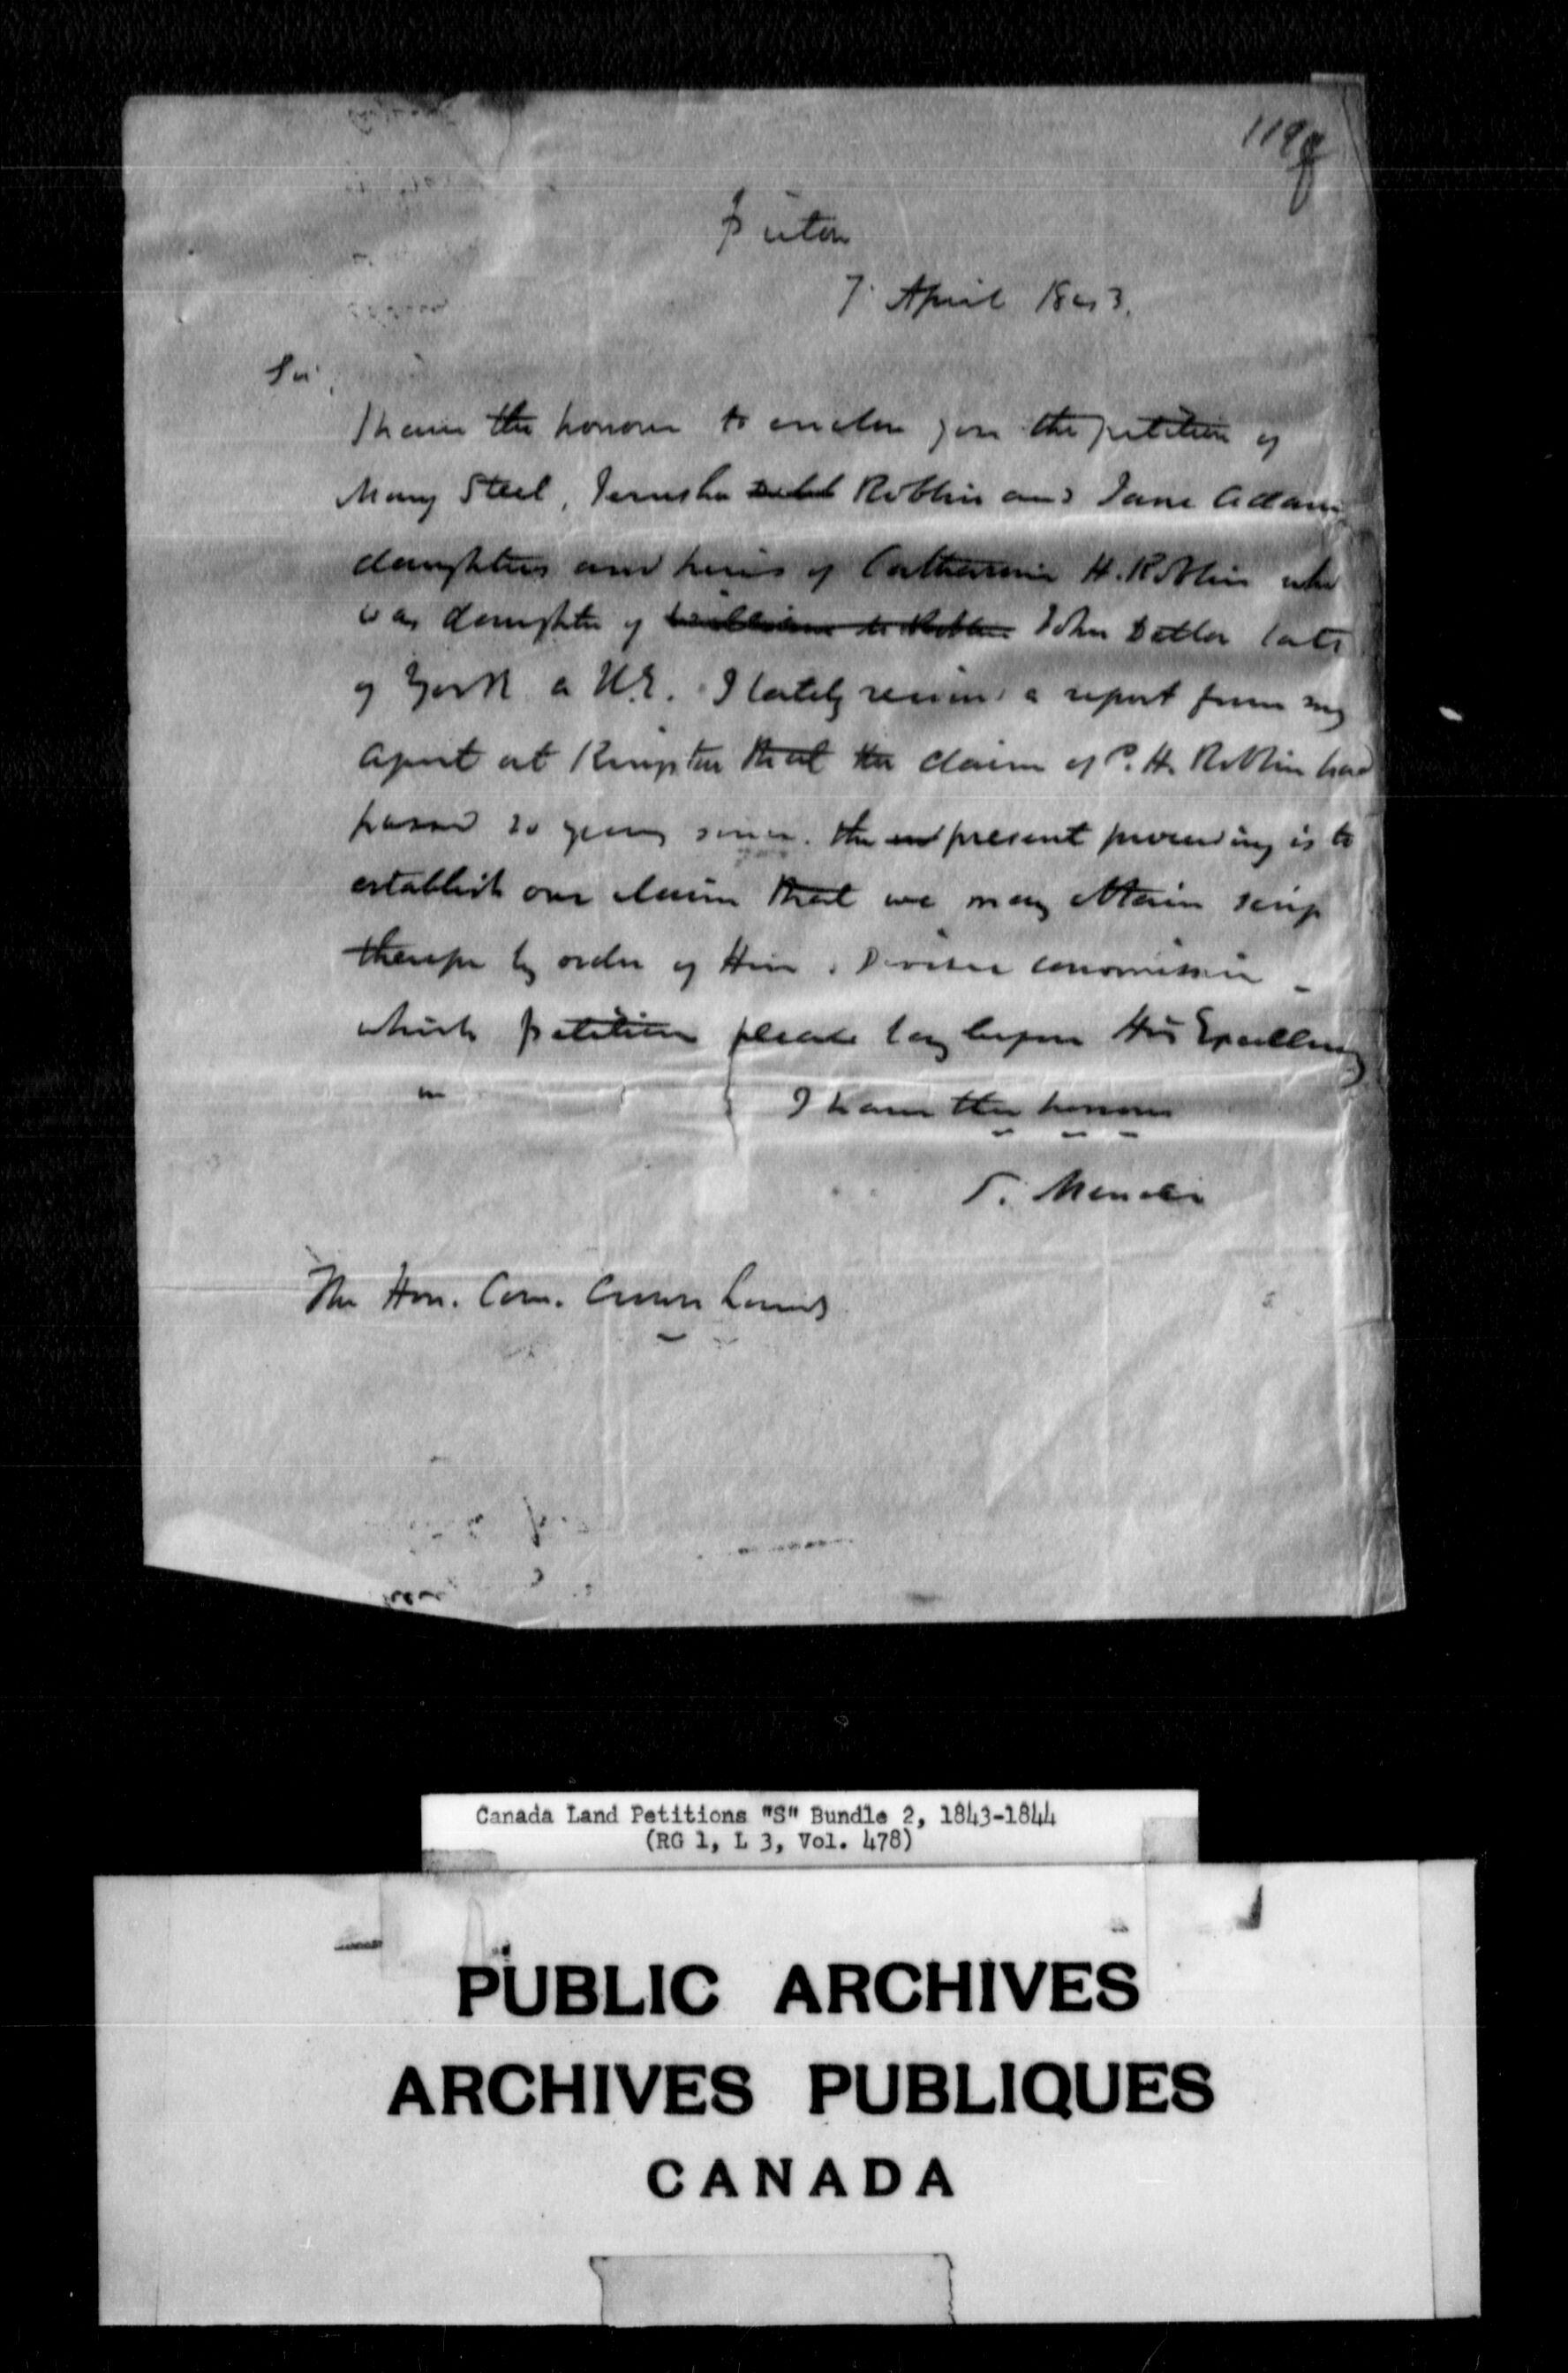 119g
Picton
7 April 1843.
Sir,
I have the honour to enclose you the petition of
Mary Steel, Jerusha Roblin and Jane Adams
daughters and heirs of Catharine H. Roblin who
was daughter of John Detlor late
of York a U.E. I lately received a report from my
agent at Kingston that the claim of C. H. Roblin had
passed 20 years since. the present proceeding is to
establish our claim that we may obtain scrip
therefor by order of Heir & Devisee Commission
which petition please lay before His Excellency
I have the honour
The Hon. Com. Crown Lands
Canada Land Petitions "S" Bundle 2, 1843-1844
(RG 1, L 3, Vol. 478)
PUBLIC ARCHIVES
ARCHIVES PUBLIQUES
CANADA